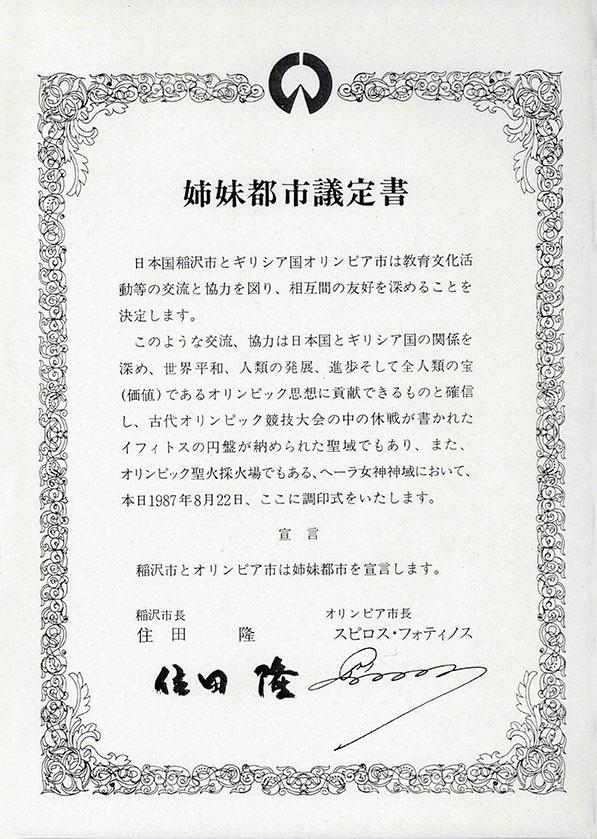 姉妹都市議定書
日本国稲沢市とギリシア国オリンピア市は教育文化活
動等の交流と協力を図り、相互間の友好を深めることを
決定します。
このような交流、協力は日本国とギリシア国の関係を
深め、世界平和、人類の発展、進歩そして全人類の宝
(価値)であるオリンピック思想に貢献できるものと確信
し、古代オリンピック競技大会の中の休戦が書かれた
イフィトスの円盤が納められた聖域でもあり、また、
オリンピック聖火採火場でもある、ヘーラ女神神域において、
本日1987年8月22日、ここに調印式をいたします。
宣言
稲沢市とオリンピア市は姉妹都市を宣言します。
稲沢市長 オリンピア市長
住田 隆 スピロス・フォティノス
住田 隆